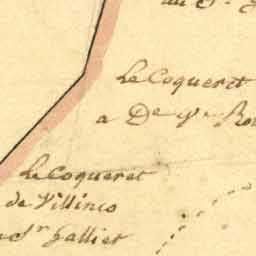 au S.
Le Coqueret
a De
Le Coqueret
de Villinco
Sr. Galliet